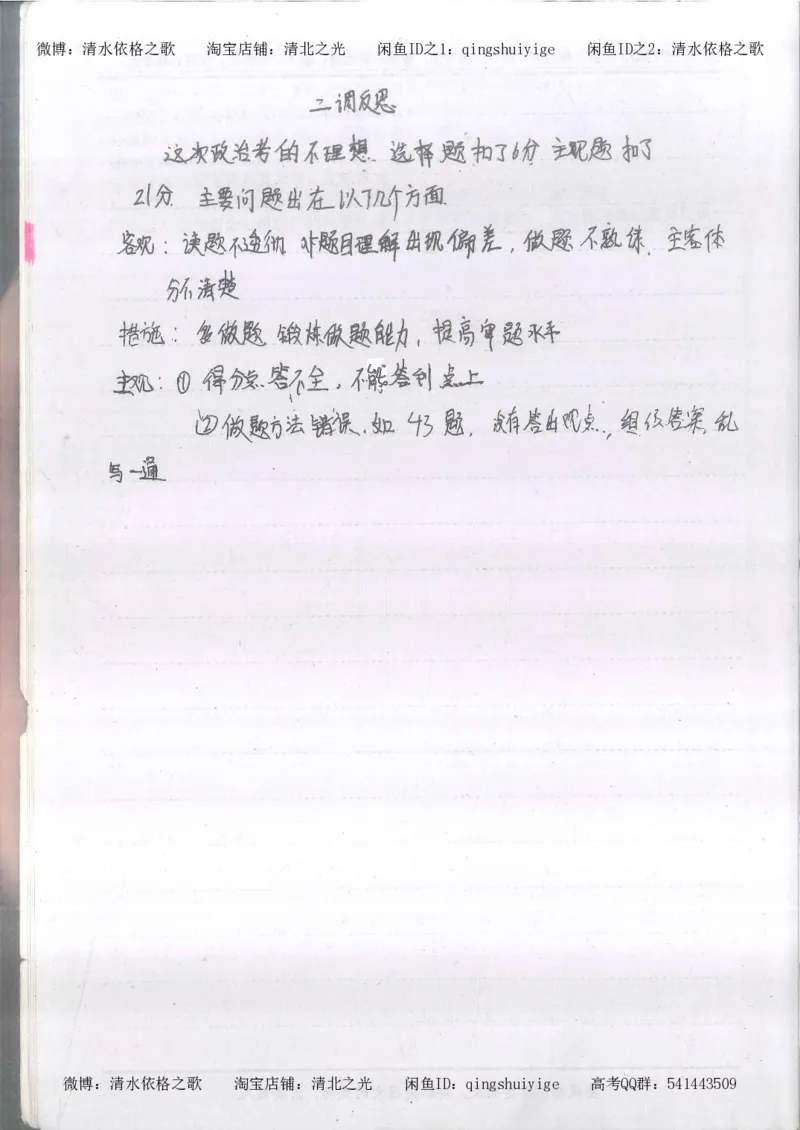 微博：清水依格之歌 淘宝店铺：清北之光 闲鱼ID之1：qingshuiyige 闲鱼ID之2：清水依格之歌
二调反思
这次政治考的不理想．选择题扣了6分 主观题扣了
21分 主要问题出在以下几个方面．
客观：读题不透彻 对题目理解出现偏差，做题不熟练．主客体
分不清楚
措施：多做题 锻炼做题能力，提高审题水平
主观：① 得分点答不全，不能答到点上
② 做题方法错误．如 43题，没有答出观点，组织答案，乱
写一通
微博：清水依格之歌 淘宝店铺：清北之光 闲鱼ID：qingshuiyige 高考QQ群：541443509